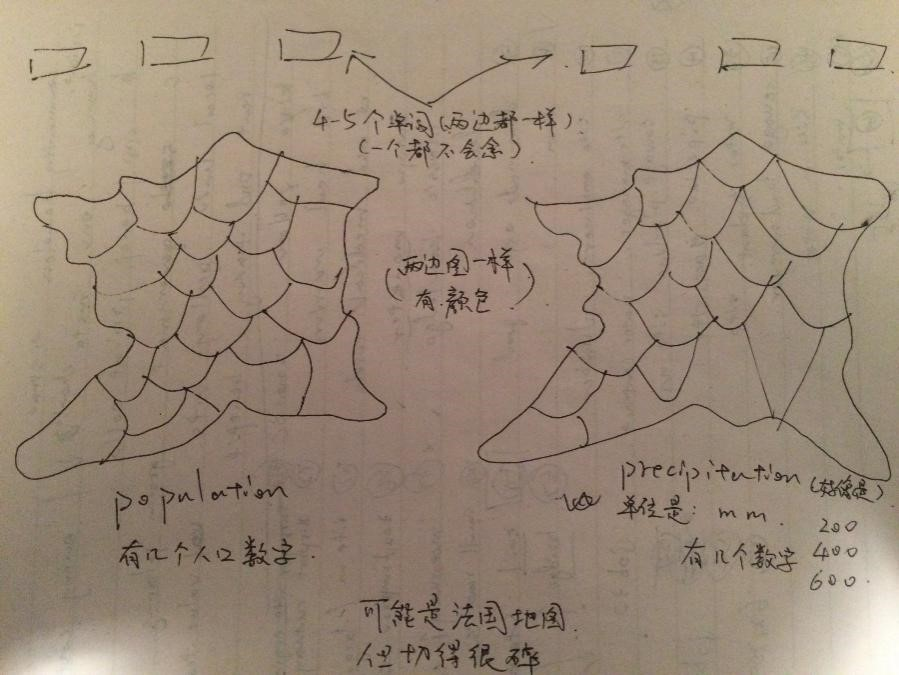 4-5个单词(两边都一样)
(一个都不会念)
(两边图一样
有颜色)
population
有几个人口数字.
precipitation (好像是)
单位是: mm.
有几个数字
200
400
600.
可能是法国地图.
但切得很碎